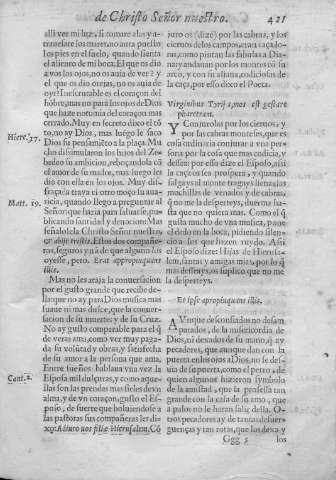 de Christo Señor nuestro. 421
allí ver mi luz, si comure alas y a-
los pies en el suelo, quando sienta
el alicante de mi boca. El que os dio
a vos los ojos, no os auia de ver? y
el que os dio orejas, no os auia de
oyr? Inescrutable es el coraçon del
hõbre, mas no para los ojos de Dios
que haze notomia del coraçon mas
cerrado. Muy en secreto dixo el tõ
to, no ay Dios, mas luego le saco
Dios su pensamiẽto a la plaça. Mu
cho dissimularon los hijos del Ze-
bedeo su ambicion, rebozandola cõ
el amor de su madre, mas luego les
dio con ella en los ojos. Muy dis-
quando llego a preguntar al
Señor que haria para saluarse, pu-
blicando santidad y deuocion: Mas
señalole la Christo Señor nuestro
& abijt tristis. Estos dos compañe-
ros, seguros ya a de que alguno los
oyesse, pero. Erat appropinquans
illis.
Hiere. 17.
Matt. 19.
Mas no les ataja la conuersacion
por el gusto grande que recibe de-
lla que no ay para Dios musica mas
suaue ni mas dulce, que la conuer-
sacion de su muerte y de su Cruz.
No ay gusto comparable para el q̃
de veras ama, como ver muy paga-
da su volũtad y obras, y satisfecha
de su amor a la persona que ama.
Entre sueños hablaua vna vez la
Esposa mil dulçuras, y como aque-
llas son las prendas mas fieles de vn
alma, y de vn coraçon, gusto el Es-
poso, de suerte que boluiendose a
las pastoras sus compañeras les di-
xo: Adiuro vos filiæ Hierusalem, Cõ
Cant. 2.
juro os (dize) por las cabras, y los
cieruos de los campos, era caçado-
ra, como pintan las fabulas a Dia-
na y andauan por los montes cõ su
arco, y con su aljaua, codiciosos de
la caça, por esso dixo el Poeta.
Virginibus Tyrijs, mos est gestare
pharetram.
Y Conjurolas por los cieruos, y
por las cabras monteses, que es
cosa ordinaria conjurar a vna per-
sona por la cosa que mas codicia, y
dessea: por esso dize el Esposo, assi
la caça os sea prospera, y quando
salgays al monte traygays llenas las
mochillas de venados y de cabras,
q̃ no me la desperteys, duerma has-
ta que no quiera mas. Como el q̃
gusta mucho de vna musica, pone
el dedo en la boca, pidiendo silen-
cio a los que hazen ruydo. Assi
el Esposo dize: Hijas de Hierusa-
len, hermanas y amigas mias, por lo q̃
mas desseays, os suplico que no me
la desperteys.
Et ipse apropinquans illis.
AVnque desconfiados no desam
parados, de la misericordia de
Dios, ni dexados de su mano, q̃ ay
pecadores, que aunque dan con la
puerta en los ojos a Dios, no se des-
uia de su puerta, como el perro, de
quien algunos hizieron symbolo
de la amistad, que la professa tan
grande con la casa de su amo, que
a palos no le haran salir della. O-
tros pecadores ay de tantas desuer-
guenças y tan rotas, que los dexa y
Ggg 5 los